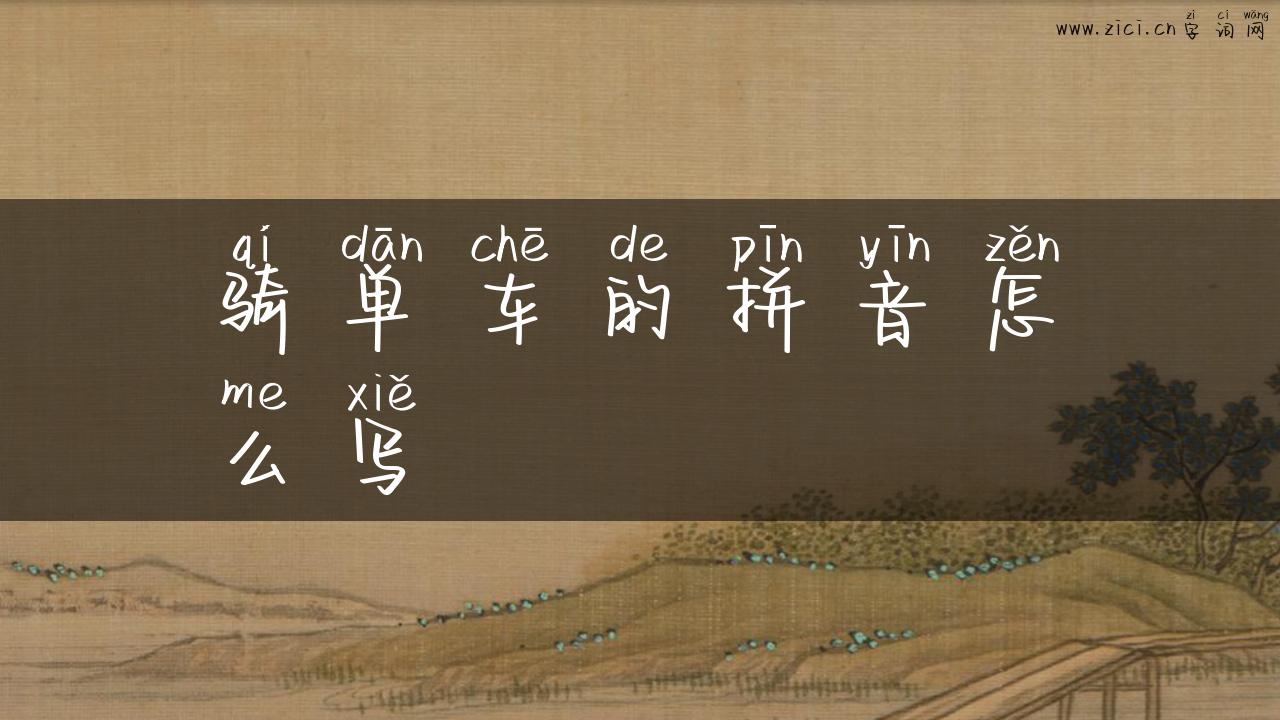 zì cí wǎng
www.zici.cn 字 词 网
qí dān chē de pīn yīn zěn
骑 单 车 的 拼 音 怎
me xiě
么 写